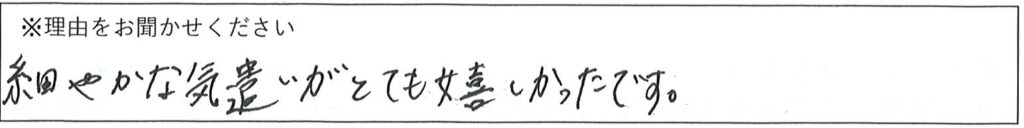 ※理由をお聞かせください
細やかな気遣いがとても嬉しかったです。